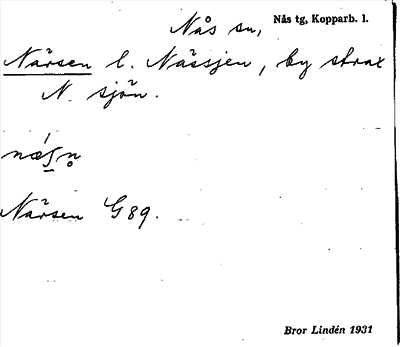 Nås sn, Nås tg, Kopparb. l.
Närsen l. Nässjen, by strax
N. sjön.
Närsen G 89.
Bror Lindén 1931